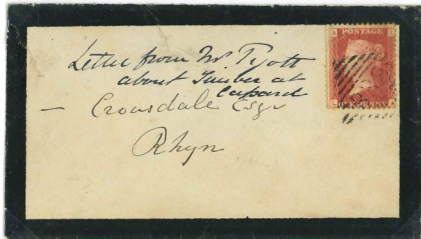 Letter from Mr Tyott
about Timber at
Capard
— Crousdale Esqr
Rhyn
POSTAGE